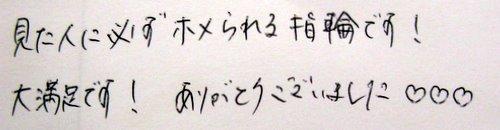 見た人に必ずホメられる指輪です！
大満足です！　ありがとうございました♡♡♡